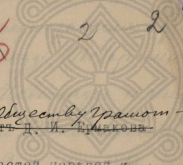 2 2
Обществу грамот-
тъ Д. И. Ермакова